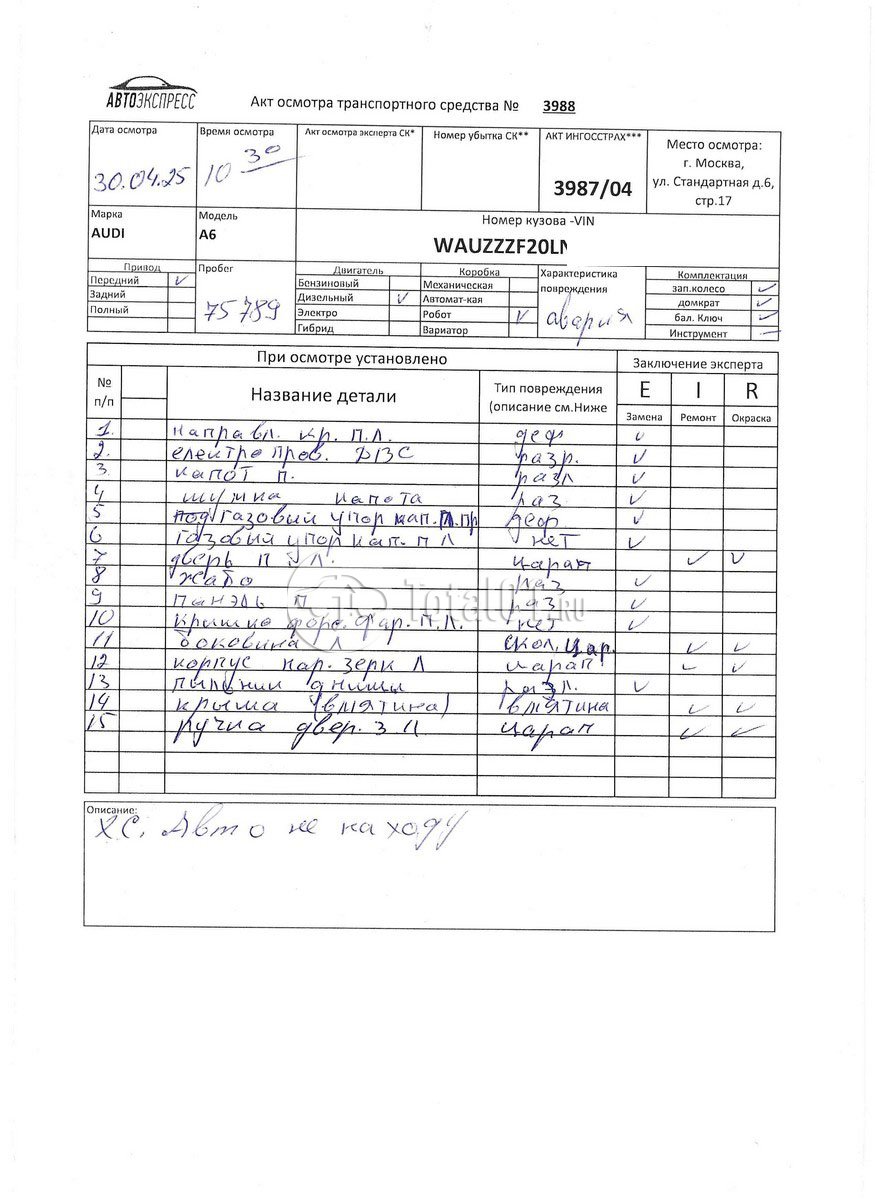 АВТОЭКСПРЕСС
Акт осмотра транспортного средства № 3988
Дата осмотра Время осмотра Акт осмотра эксперта СК* Номер убытка СК** АКТ ИНГОССТРАХ*** Место осмотра:
г. Москва,
ул. Стандартная д.6,
стр.17
30.04.25 10 30 3987/04
Марка Модель Номер кузова -VIN
AUDI A6 WAUZZZF20LN
Привод Пробег Двигатель Коробка Характеристика повреждения Комплектация
Передний ✓ Бензиновый Механическая зап.колесо ✓
Задний Дизельный ✓ Автомат-кая домкрат ✓
Полный 75789 Электро Робот ✓ авария бал. Ключ ✓
Гибрид Вариатор Инструмент —
При осмотре установлено Заключение эксперта
№ п/п Название детали Тип повреждения (описание см.Ниже E I R
Замена Ремонт Окраска
1. направл. кр. п.л. деф ✓
2. електро пров. ДВС разр. ✓
3. капот п. разл ✓
4 шумка капота раз ✓
5 газовый упор кап. п.пр деф ✓
6 газовый упор кап. п Л нет ✓
7 дверь п Л. царап ✓ ✓
8 жабо раз ✓
9 панэль п раз ✓
10 крышка форс. фар. п.л. нет ✓
11 боковина Л скол, цар. ✓ ✓
12 корпус нар. зерк Л царап ✓ ✓
13 пыльник днища разл. ✓
14 крыша (вмятина) вмятина ✓ ✓
15 ручка двер. з Л царап ✓ ✓
Total01.RU
Описание:
ХС. Авто не на ходу